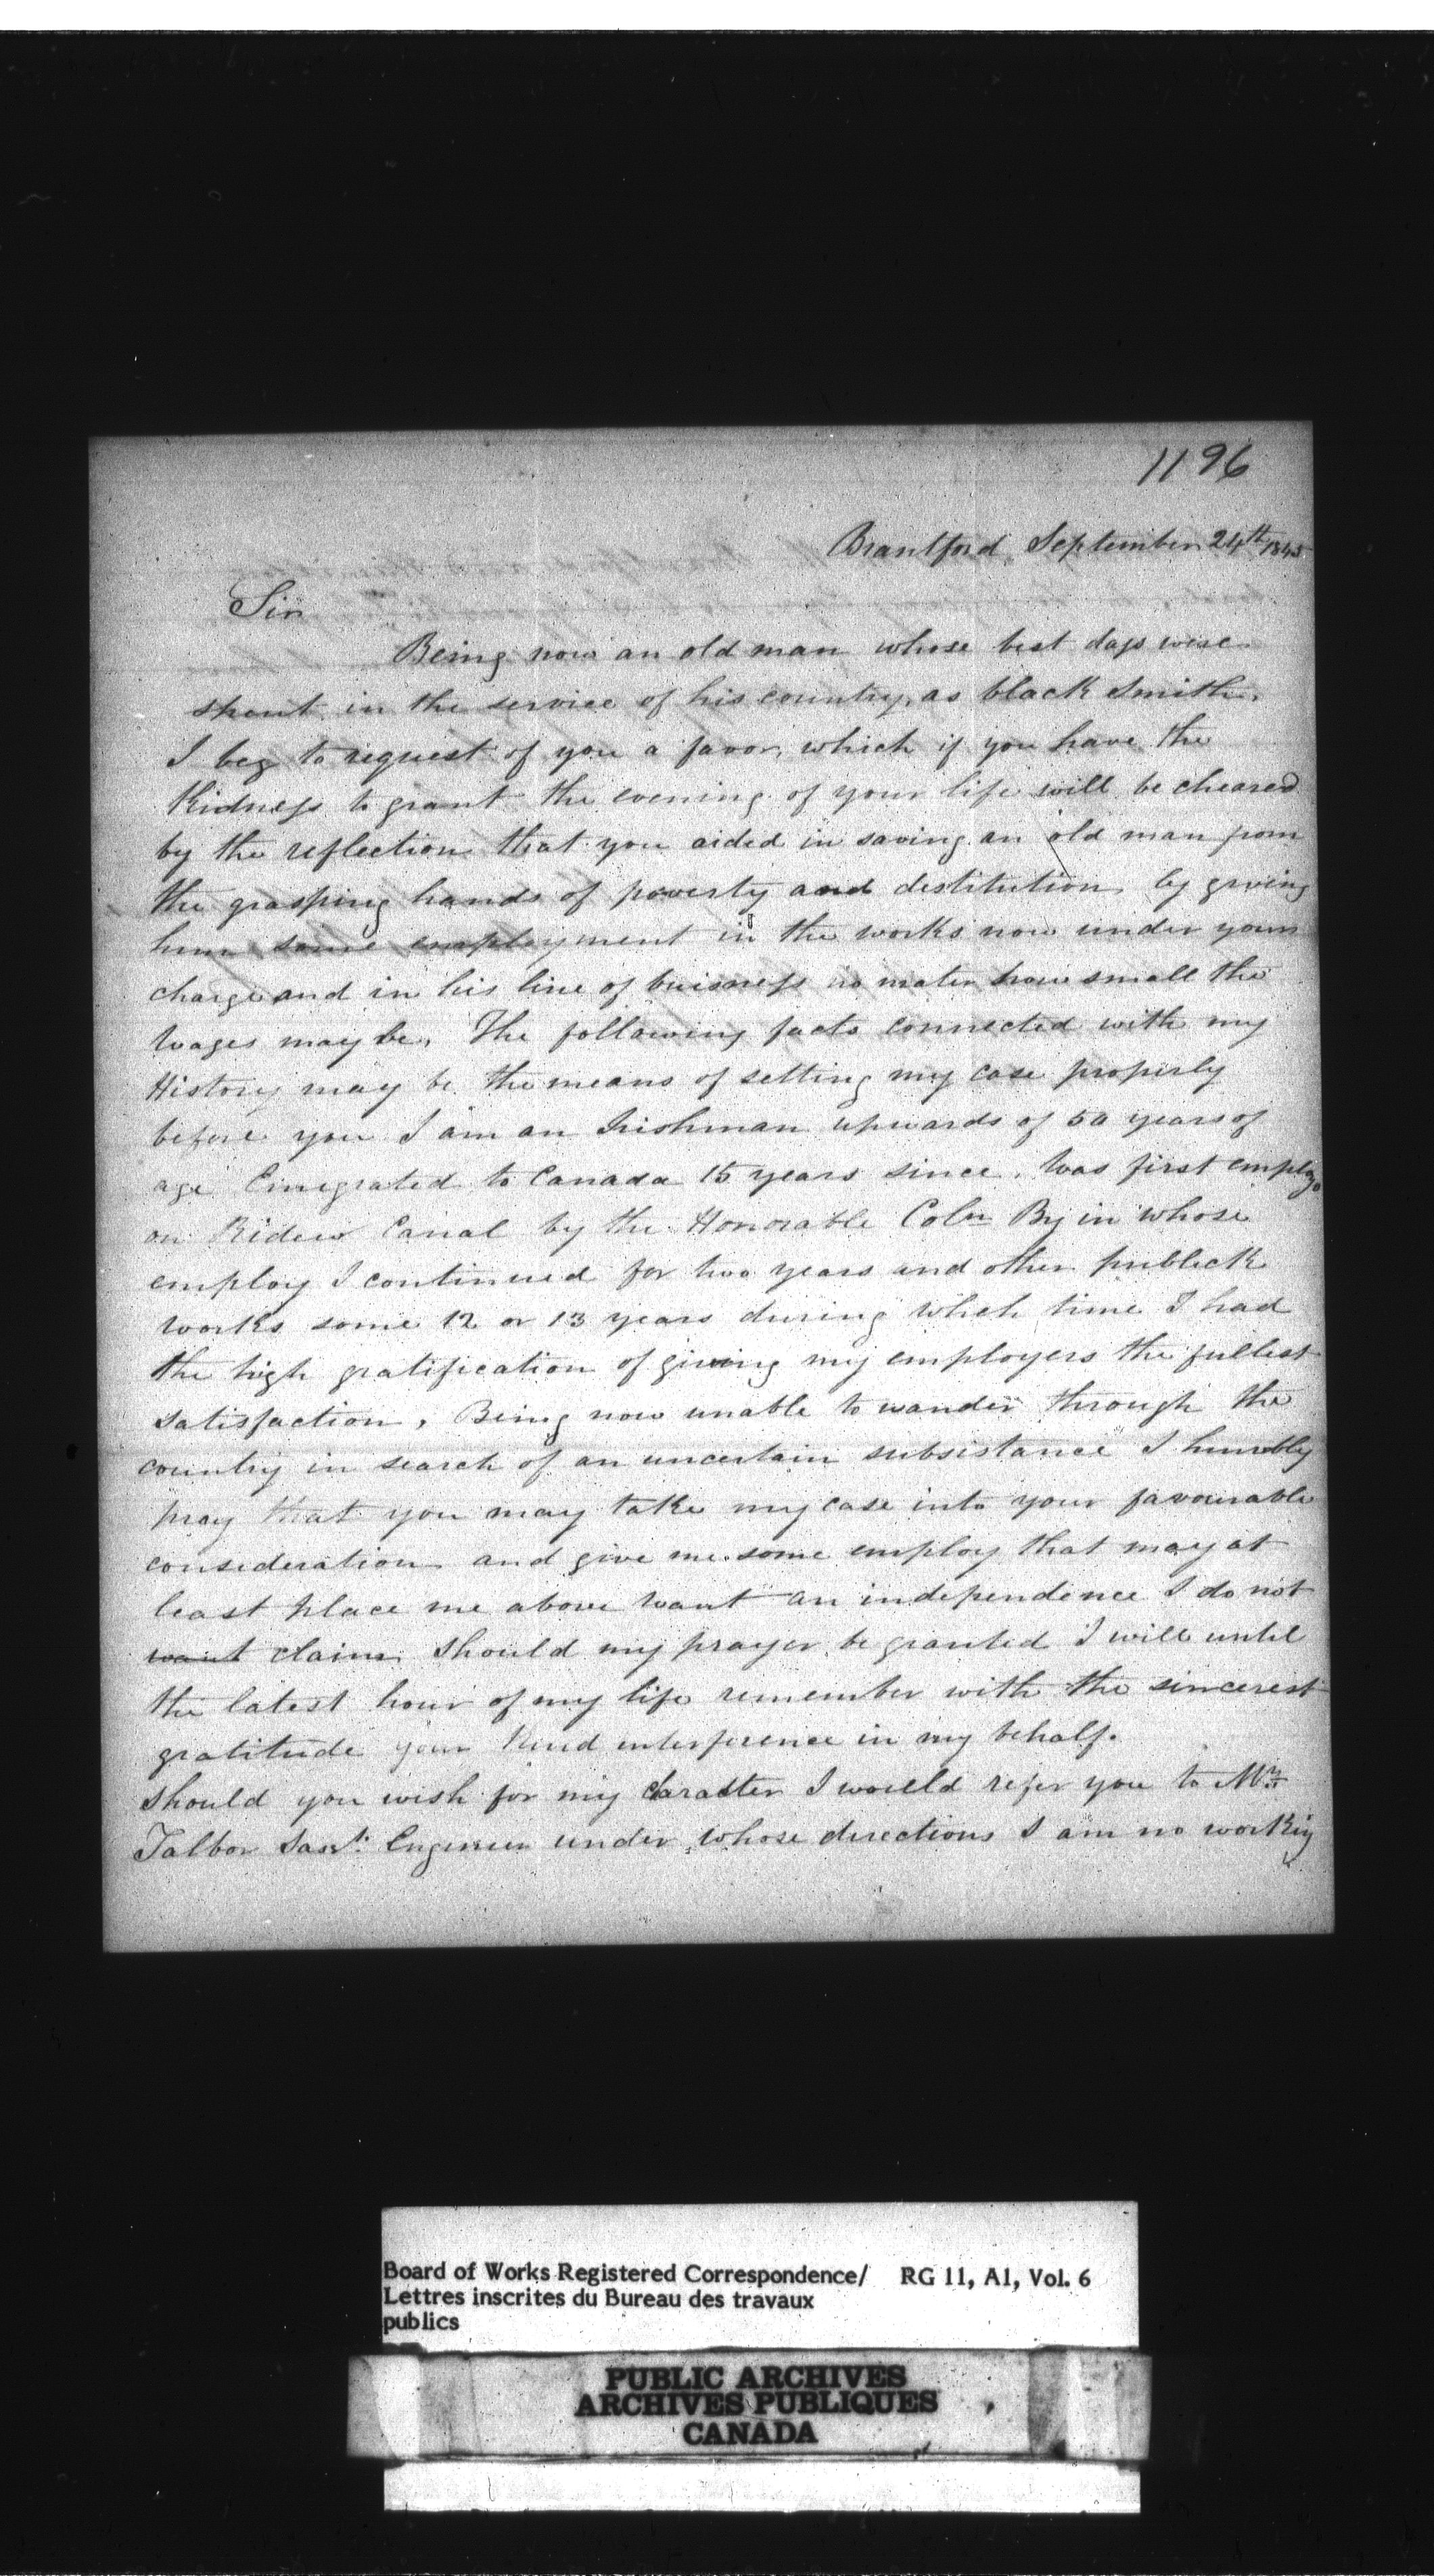 1196
Brantford September 24th 1843
Sir
Being now an old man whose best days were
spent in the service of his country, as black Smith,
I beg to request of you a favor, which if you have the
Kidness to grant the evening of your life will be cheared
by the reflection that you aided in saving an old man from
the grasping hands of poverty and destitution, by giving
him some employment in the works now under your
charge and in his line of buisness no mater how small the
wages may be. The following facts connected with my
History may be the means of setting my case properly
before you I am an Irishman upwards of 50 years of
age Emegrated to Canada 15 years since. Was first employ
on Ridew Canal by the Honorable Coln By in whose
employ I continued for two years and other publick
works some 12 or 13 years during which time I had
the high gratification of giving my employers the fullest
satisfaction, Being now unable to wander through the
country in search of an uncertain subsistance I humbly
pray that you may take my case into your favourable
consideration and give me some employ that may at
least place me above want an independence I do not
want claim. Should my prayer be granted I will until
the latest hour of my life remember with the sincerest
gratitude your kind interference in my behalf.
Should you wish for my charadter I would refer you to Mr
Talbor Engineer under whose directions I am no working
Board of Works Registered Correspondence/ RG 11, A1, Vol. 6
Lettres inscrites du Bureau des travaux
publics
PUBLIC ARCHIVES
ARCHIVES PUBLIQUES
CANADA